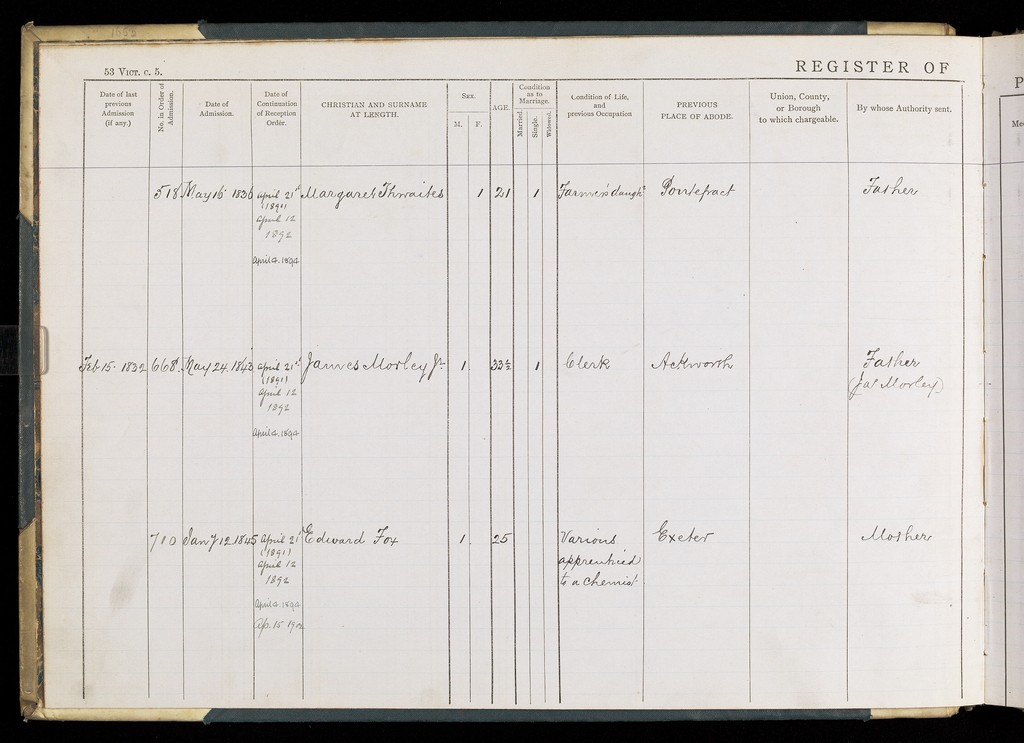 53 VICT. c. 5.
REGISTER OF
Date of last previous Admission (if any.)
No. in Order of Admission.
Date of Admission.
Date of Continuation of Reception Order.
CHRISTIAN AND SURNAME AT LENGTH.
SEX.
M. F.
AGE.
Condition as to Marriage.
Married
Single.
Widowed.
Condition of Life, and previous Occupation
PREVIOUS PLACE OF ABODE.
Union, County, or Borough to which chargeable.
By whose Authority sent.
518 May 16 1836 April 21st Margaret Thwaites 1 21 1 Farmer's daughr Pontefract Father
(1891)
April 12
1892
April 4. 1894
Feb 15. 1832 668 May 24 1843 April 21st James Morley Jr 1. 33½ 1 Clerk Ackworth Father
(1891) (Jas Morley)
April 12
1892
April 4. 1894
710 Jany 12 1845 April 21 Edward Fox 1. 25 Various Exeter Mother
(1891) apprenticed
April 12 to a Chemist
1892
April 4. 1894
Ap. 15 1902